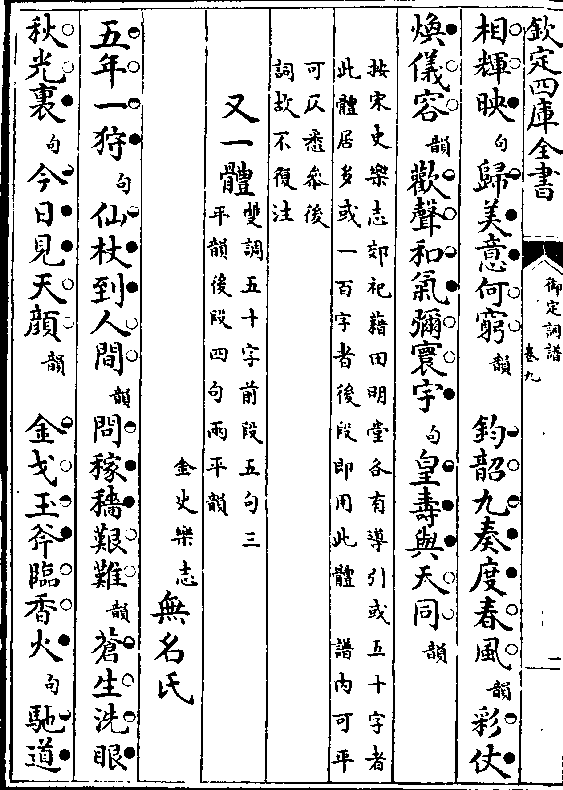 欽定四庫全書
御定詞譜
卷九
二
相輝映句歸美意何窮韻 鈞韶九奏度春風韻彩仗
煥儀容韻歡聲和氣彌寰宇句皇壽與天同韻
按宋史樂志郊祀藉田明堂各有導引或五十字者
此體居多或一百字者後段即用此體 譜內可平
可仄悉參後
詞故不復注
又一體
雙調五十字前段五句三
平韻後段四句兩平韻
金史樂志
無名氏
五年一狩句仙杖到人間韻問稼穡艱難韻蒼生洗眼
秋光裏句今日見天顏韻 金戈玉斧臨香火句馳道